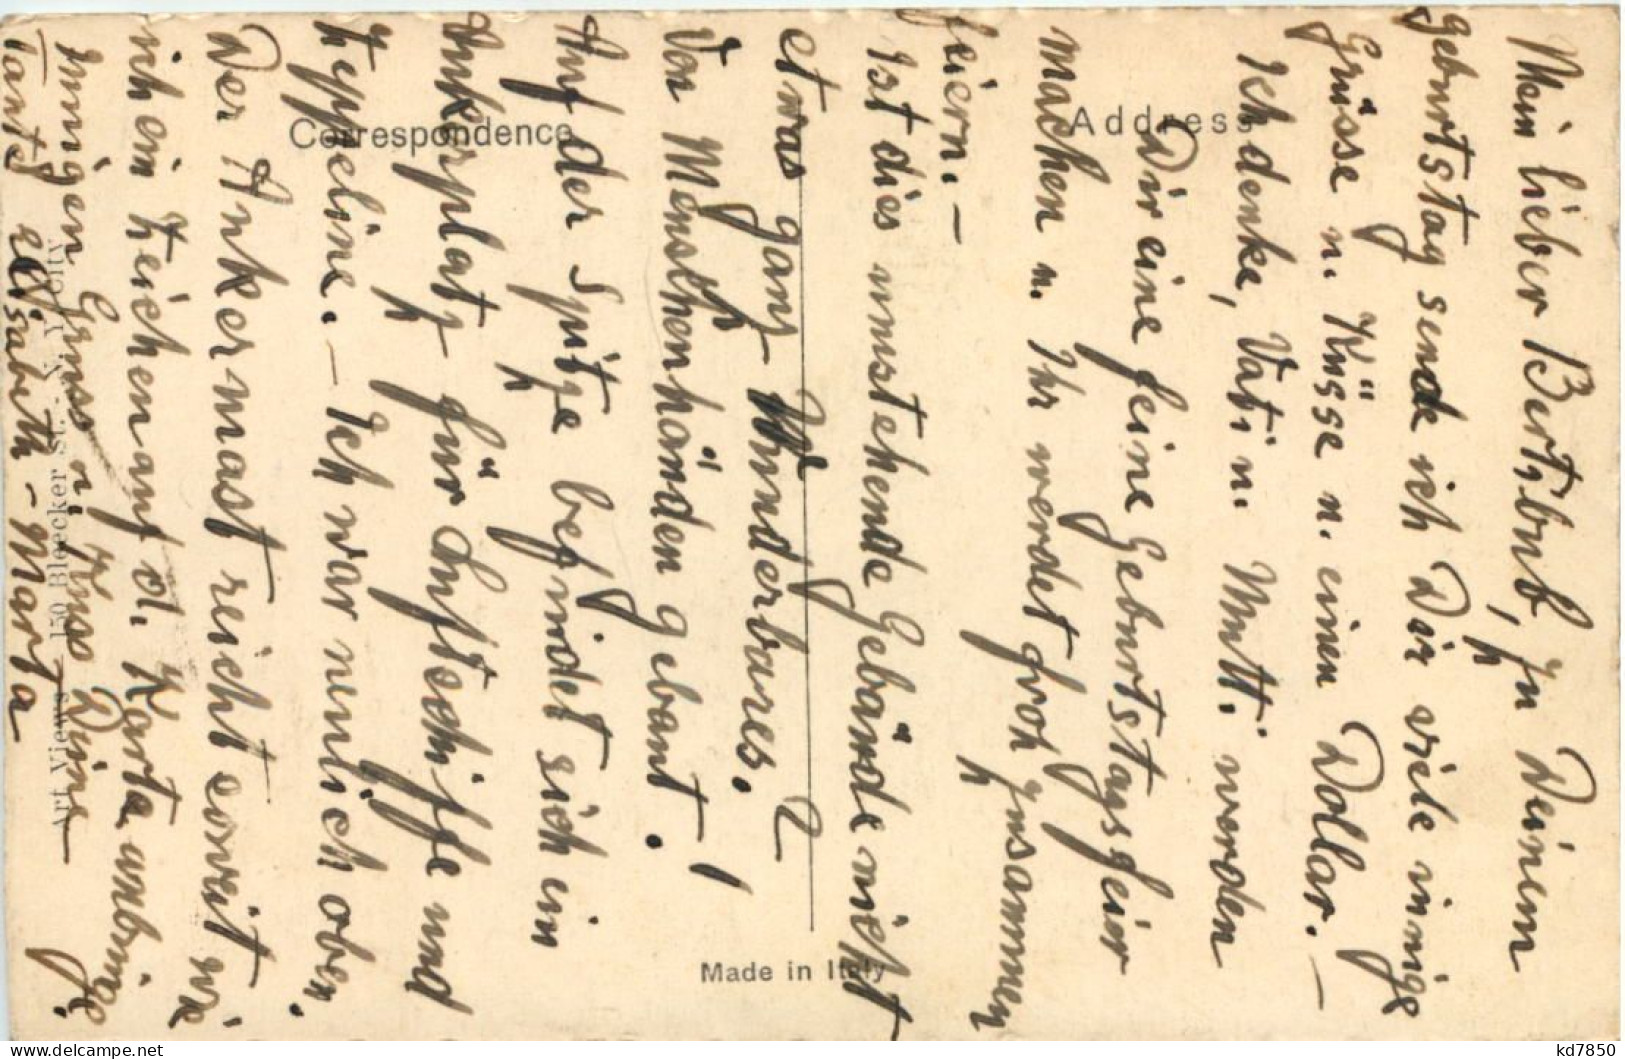 Mein lieber Bertibub, zu Deinem
Geburtstag sende ich Dir viele innige
Grüsse u. Küsse u. einen Dollar. —
Ich denke, Vati u. Mutti werden
Dir eine feine Geburtstagsfeier
machen u. Ihr werdet froh zusammen
feiern. —
Ist dies umstehende Gebäude nicht
etwas ganz Wunderbares. ?
Von Menschenhänden gebaut !
Auf der Spitze befindet sich ein
Ankerplatz für Luftschiffe und
Zeppeline. — Ich war neulich oben.
Der Ankermast reicht soweit wie
ich ein Zeichen auf d. Karte anbringe.
Innigen Gruss u. Kuss Deine
Tante Elisabeth - Marta
Correspondence
Address
Made in Italy
Art Views — 150 Bleecker St. - N. Y. City
kd7850